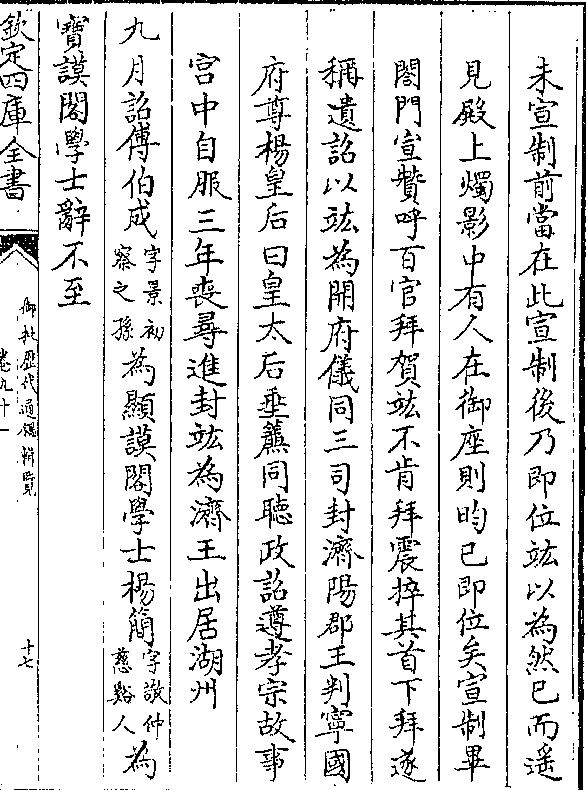 未宣制前當在此宣制後乃即位竑以為然已而遥
見殿上燭影中有人在御座則昀已即位矣宣制畢
閤門宣贊呼百官拜賀竑不肯拜震捽其首下拜遂
稱遺詔以竑為開府儀同三司封濟陽郡王判寧國
府尊楊皇后曰皇太后垂簾同聽政詔遵孝宗故事
宫中自服三年喪尋進封竑為濟王出居湖州
九月詔傅伯成字景初察之孫為顯謨閣學士楊簡字敬仲慈谿人為
寶謨閣學士辭不至
欽定四庫全書
御批歷代通鑑輯覽
卷九十一
十七